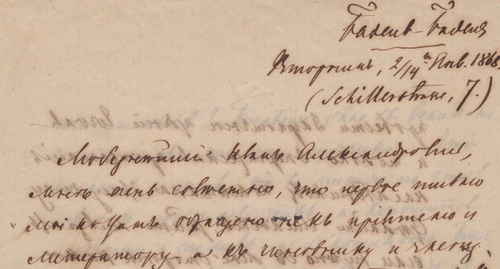 Баден-Баден
Вторникъ, 2/14го Янв. 1868.
(Schillerstrasse, 7.)
Любезнѣйшій Иванъ Александровичъ,
мнѣ очень совѣстно, что первое письмо
мое къ Вамъ обращено не къ пріятелю и
литератору – а къ чиновнику и члену